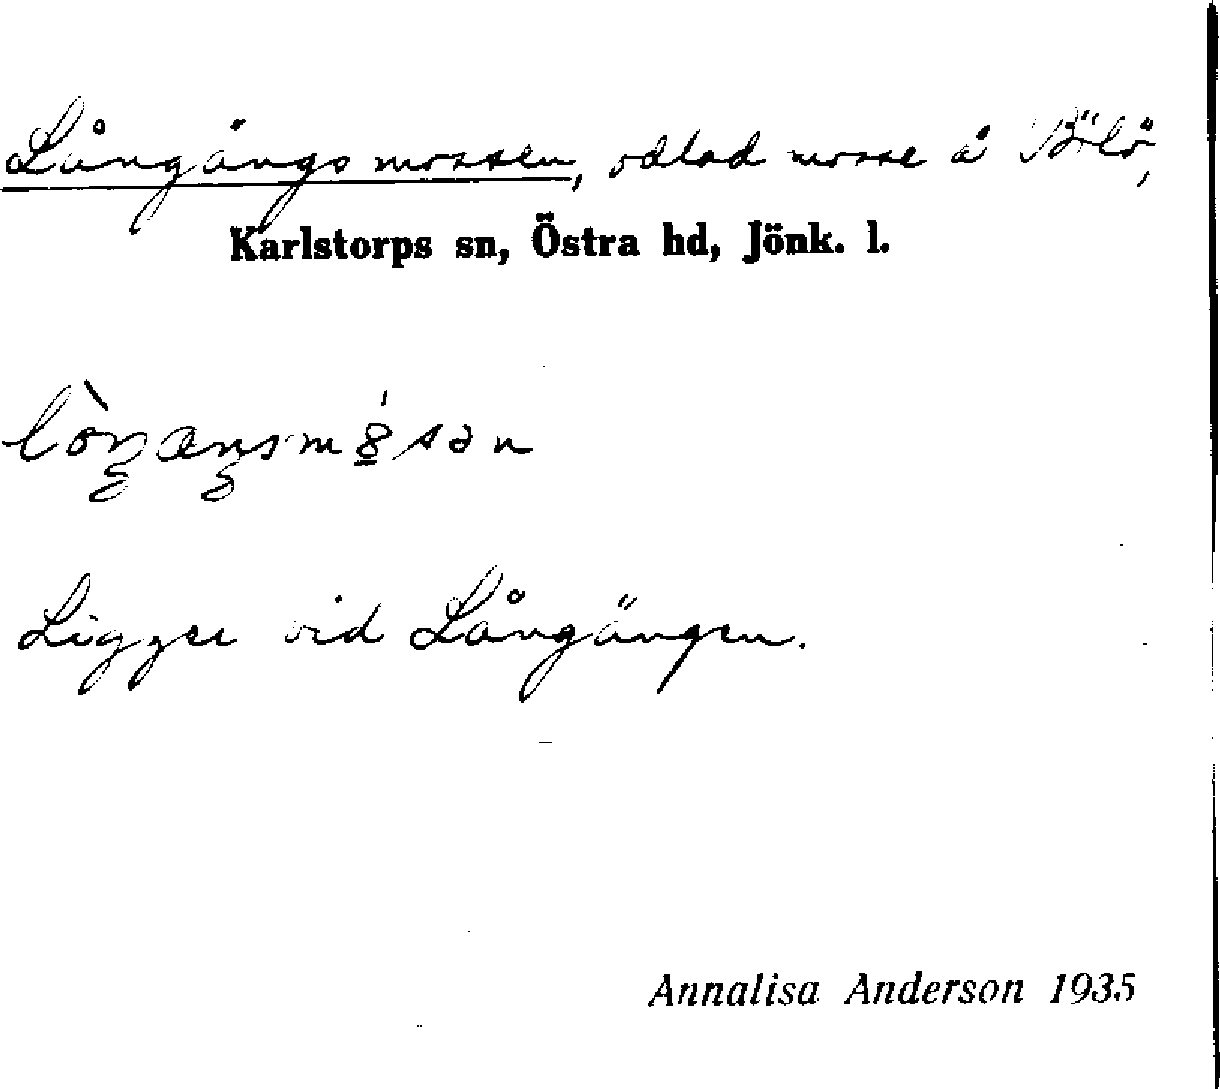 Långängsmossen, odlad mosse å Bölö,
Karlstorps sn, Östra hd, Jönk. l.
Ligger vid Långängen.
Annalisa Anderson 1935